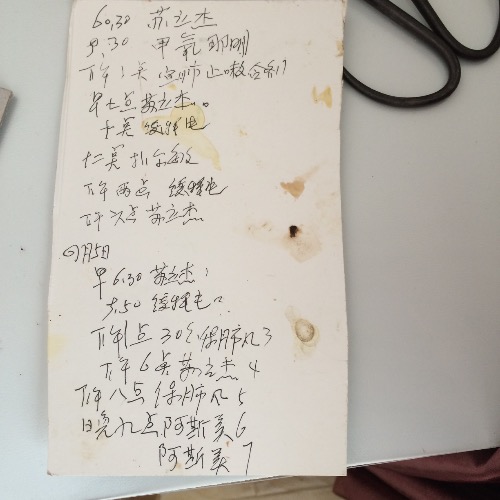 6.30 苏立杰
早.30 甲氧那明
下午1点 宣肺止嗽合剂
早七点苏立杰。
十点 缓释片
十二点
下午两点 缓释片
下午六点 苏立杰
9月5日
早6.30 苏立杰
缓释片
下午1点 30分保肺丸3
下午6点苏立杰 4
下午八点 保肺丸 5
晚九点阿斯美6
阿斯美 7